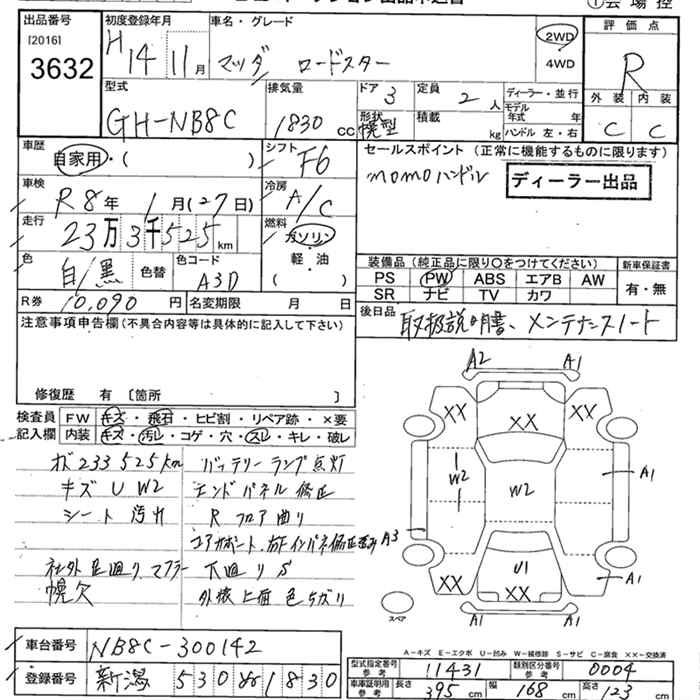 ①会場控
出品番号
[2016]
3632
初度登録年月
H14 11月
車名・グレード
マツダ ロードスター
2WD
4WD
評価点
R
外装 内装
C C
型式
GH-NB8C
排気量
1830 cc
ドア 3
形状
幌型
定員 2 人
積載 kg
ディーラー・並行
モデル年式 年
ハンドル 左・右
車歴
自家用・( )
シフト F6
セールスポイント(正常に機能するものに限ります)
momoハンドル
ディーラー出品
車検
R8年 1月(27日)
冷房 A/C
走行
23万3千525km
燃料
ガソリン
軽・油
( )
色
白/黒 色替
色コード
A3D
装備品(純正品に限り○をつけてください)
新車保証書
PS PW ABS エアB AW
SR ナビ TV カワ
有・無
R券 10,090円
名変期限 月 日
後日品
取扱説明書、メンテナンスノート
注意事項申告欄(不具合内容等は具体的に記入して下さい)
修復歴 有〔箇所 〕
検査員記入欄
FW キズ・飛石・ヒビ割・リペア跡・×要
内装 キズ・汚れ・コゲ・穴・スレ・キレ・破レ
233525km バッテリーランプ点灯
キズ U W2 エンドパネル修正
シート 汚れ Rフロア曲り
コアサポート
社外足廻り、マフラー 下廻りS
幌欠
A2 A1
XX XX XX
W2 W2 A1
A3
U1
XX XX A1
A1 A1
スペア
A-キズ E-エクボ U-凹み W-補修跡 S-サビ C-腐食 XX-交換済
車台番号
NB8C-300142
登録番号
新潟 530 1830
型式指定番号
参考
11431
類別区分番号
参考
0004
車庫証明用
参考
長さ 395 cm
幅 168 cm
高さ 123 cm